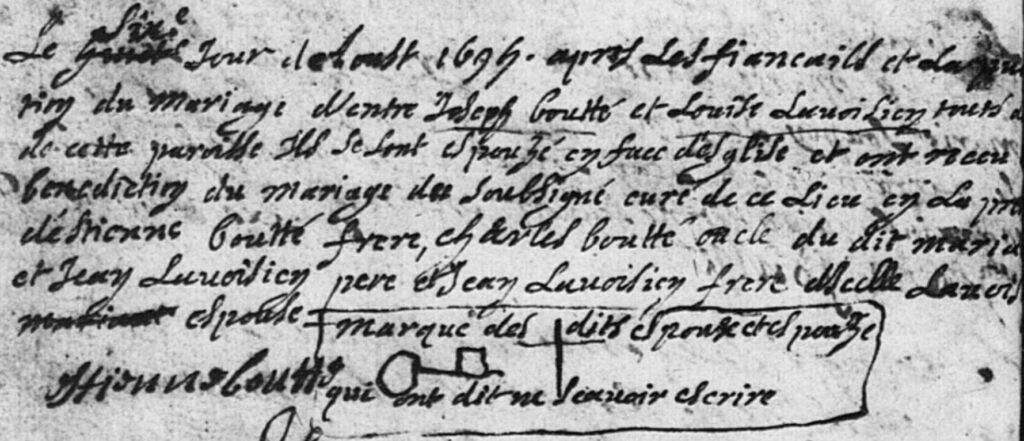 sixe
Le Jour d'Aoust 1695. apres Les fiancaills et La pu
tion du mariage d'entre Joseph boutté et Louise Lavoisien touts
de cette paroisse Ils se sont espouzé en face desglise et ont receu
benediction du mariage du soubsigné curé de ce Lieu en La pre
destienne boutté frere, charles boutté oncle du dit maria
et Jean Lavoisien pere et Jean Lavoisien frere Lavois
espouse
marque des dits espouze et espouze
estienne boutté qui ont dit ne scavoir escrire